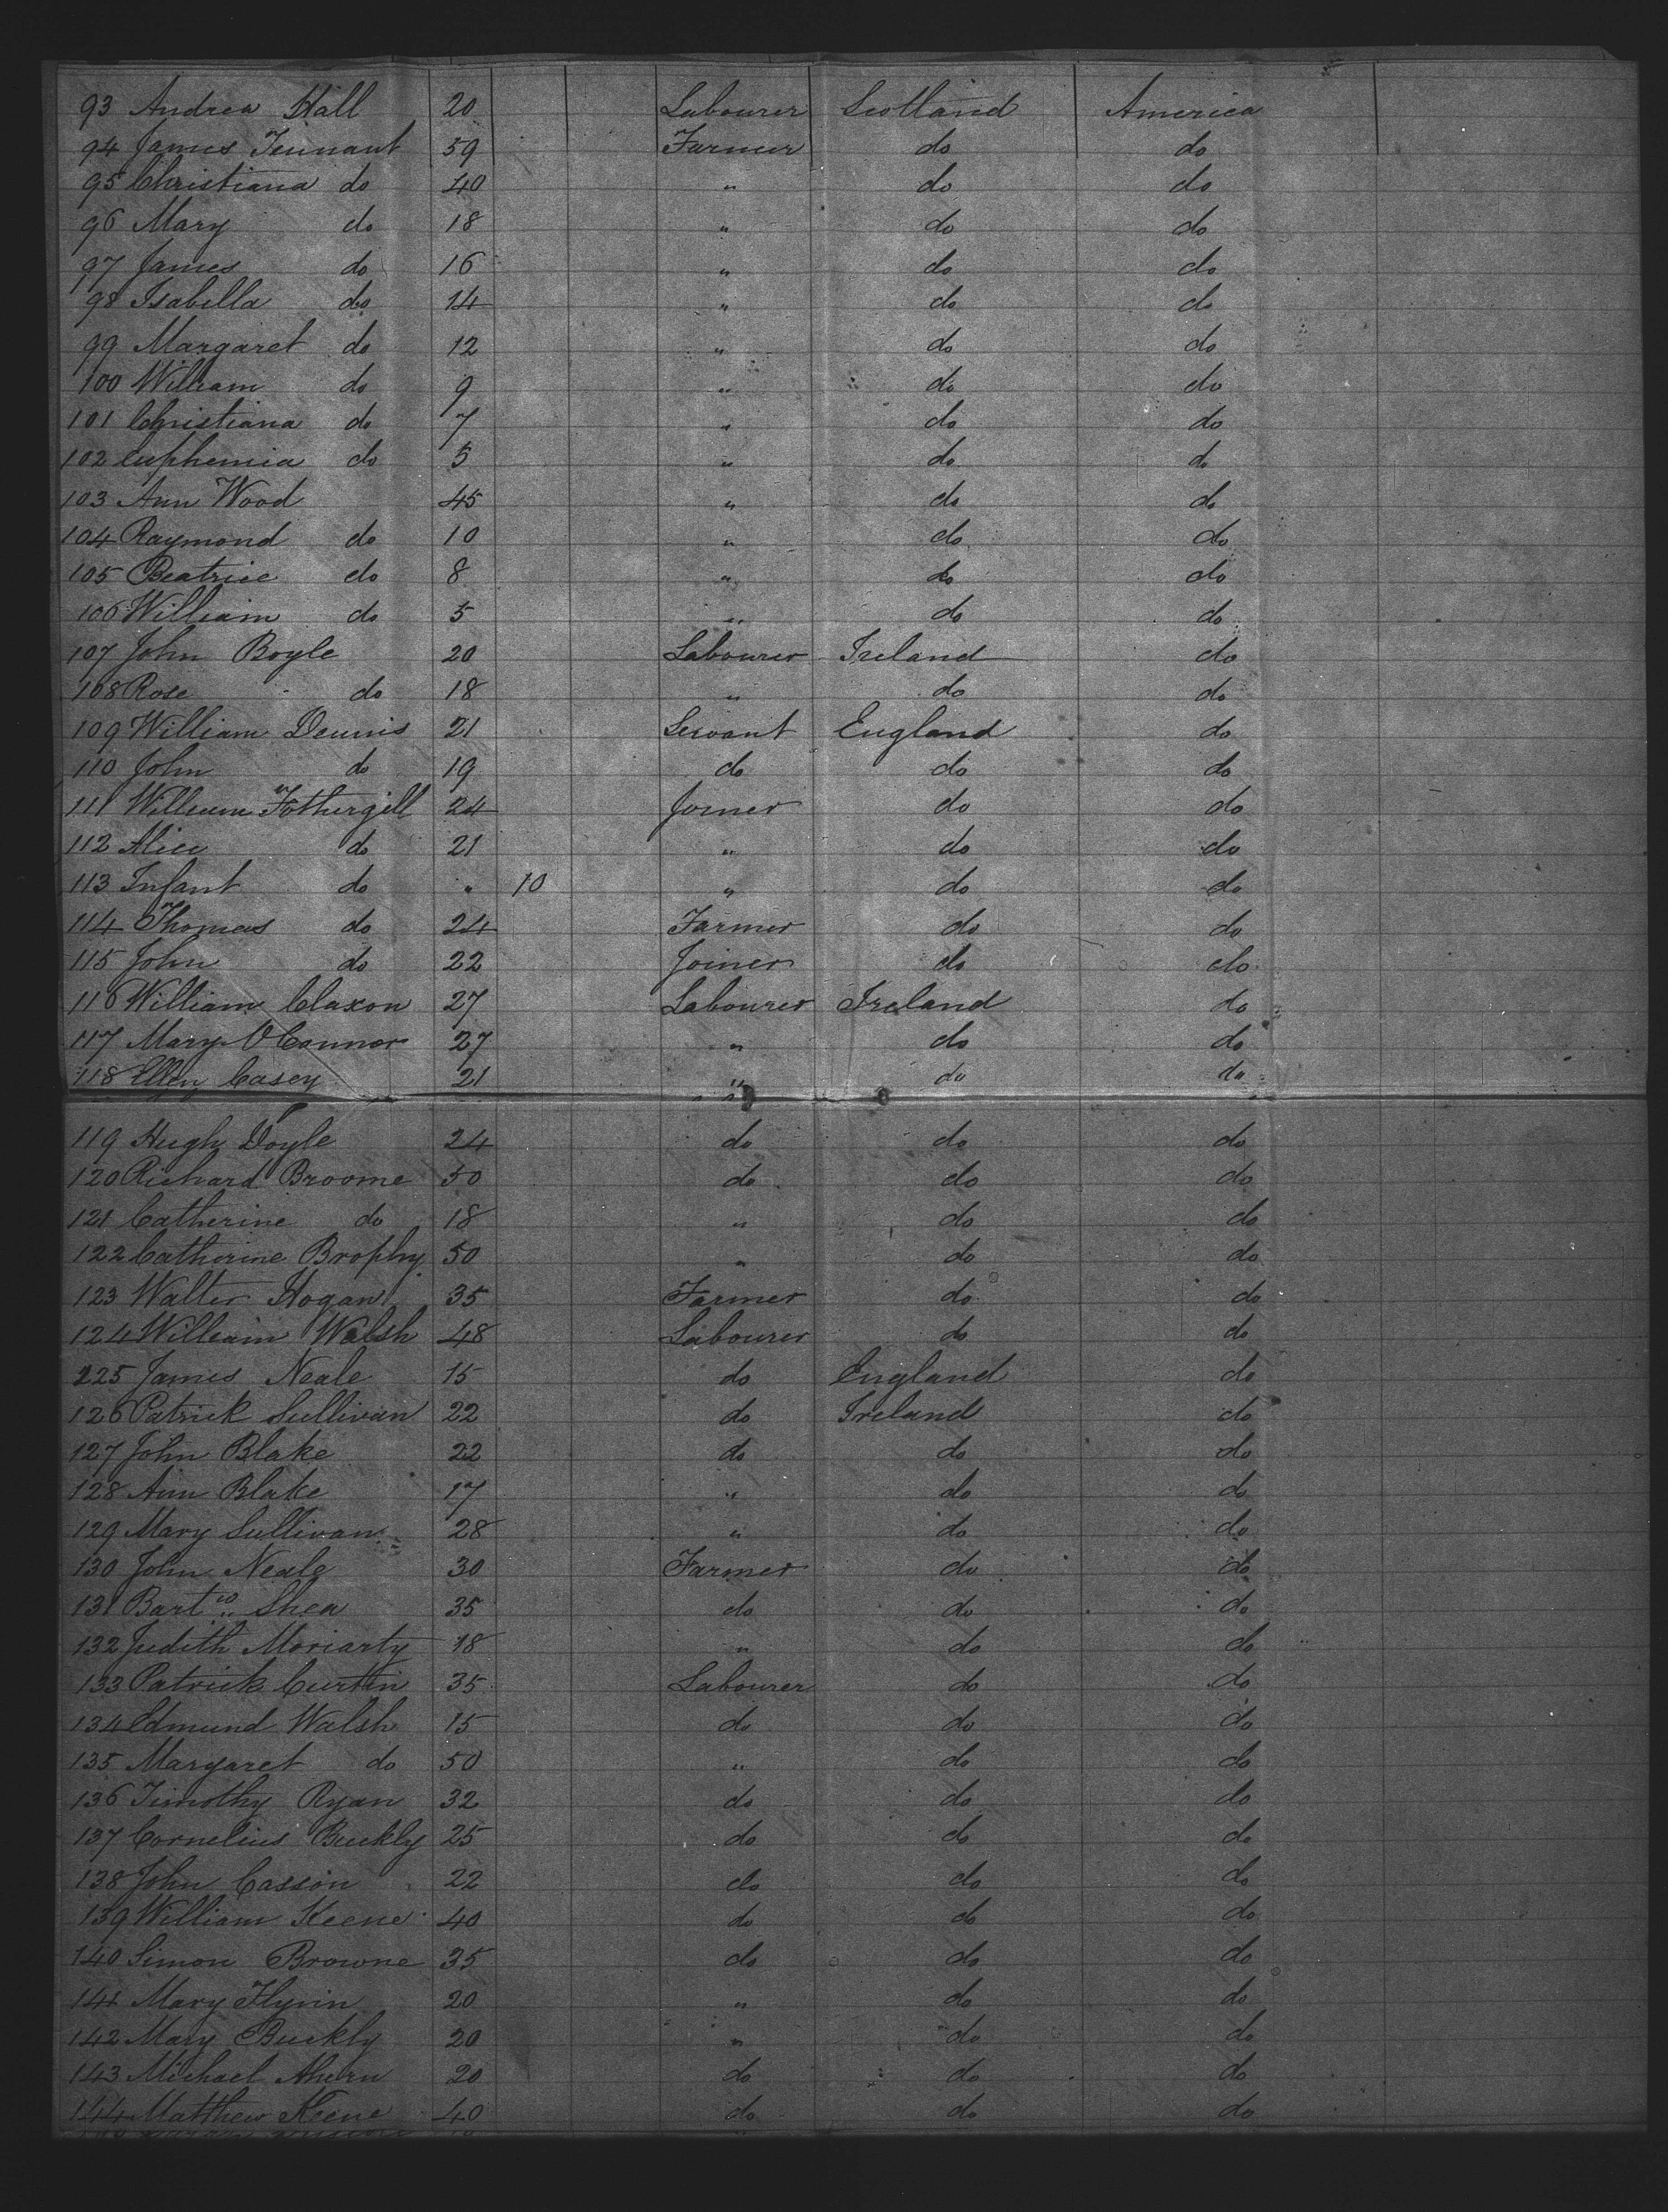 93 Andrew Hall 20 Labourer Scotland America
94 James Tennant 59 Farmer do do
95 Christiana do 40 " do do
96 Mary do 18 " do do
97 James do 16 " do do
98 Isabella do 14 " do do
99 Margaret do 12 " do do
100 William do 9 " do do
101 Christiana do 7 " do do
102 Euphemia do 5 " do do
103 Ann Wood 45 " do do
104 Raymond do 10 " do do
105 Beatrice do 8 " do do
106 William do 5 " do do
107 John Boyle 20 Labourer Ireland do
108 Rose do 18 " do do
109 William Dennis 21 Servant England do
110 John do 19 do do do
111 William Fothergill 24 Joiner do do
112 Alice do 21 " do do
113 Infant do " 10 " do do
114 Thomas do 24 Farmer do do
115 John do 22 Joiner do do
116 William Claxon 27 Labourer Ireland do
117 Mary O'Connor 27 " do do
118 Ellen Casey 21 " do do
119 Hugh Doyle 24 do do do
120 Richard Broome 50 do do do
121 Catherine do 18 " do do
122 Catherine Brophy 50 " do do
123 Walter Hogan 35 Farmer do do
124 William Walsh 48 Labourer do do
225 James Neale 15 do England do
126 Patrick Sullivan 22 do Ireland do
127 John Blake 22 do do do
128 Ann Blake 17 " do do
129 Mary Sullivan 28 " do do
130 John Neale 30 Farmer do do
131 Bartw Shea 35 do do do
132 Judith Moriarty 18 " do do
133 Patrick Curtin 35 Labourer do do
134 Edmund Walsh 15 do do do
135 Margaret do 50 " do do
136 Timothy Ryan 32 do do do
137 Cornelius Buckly 25 do do do
138 John Casson 22 do do do
139 William Keene 40 do do do
140 Simon Browne 35 do do do
141 Mary Flynn 20 " do do
142 Mary Buckly 20 " do do
143 Michael Ahern 20 do do do
144 Matthew Keene 40 do do do